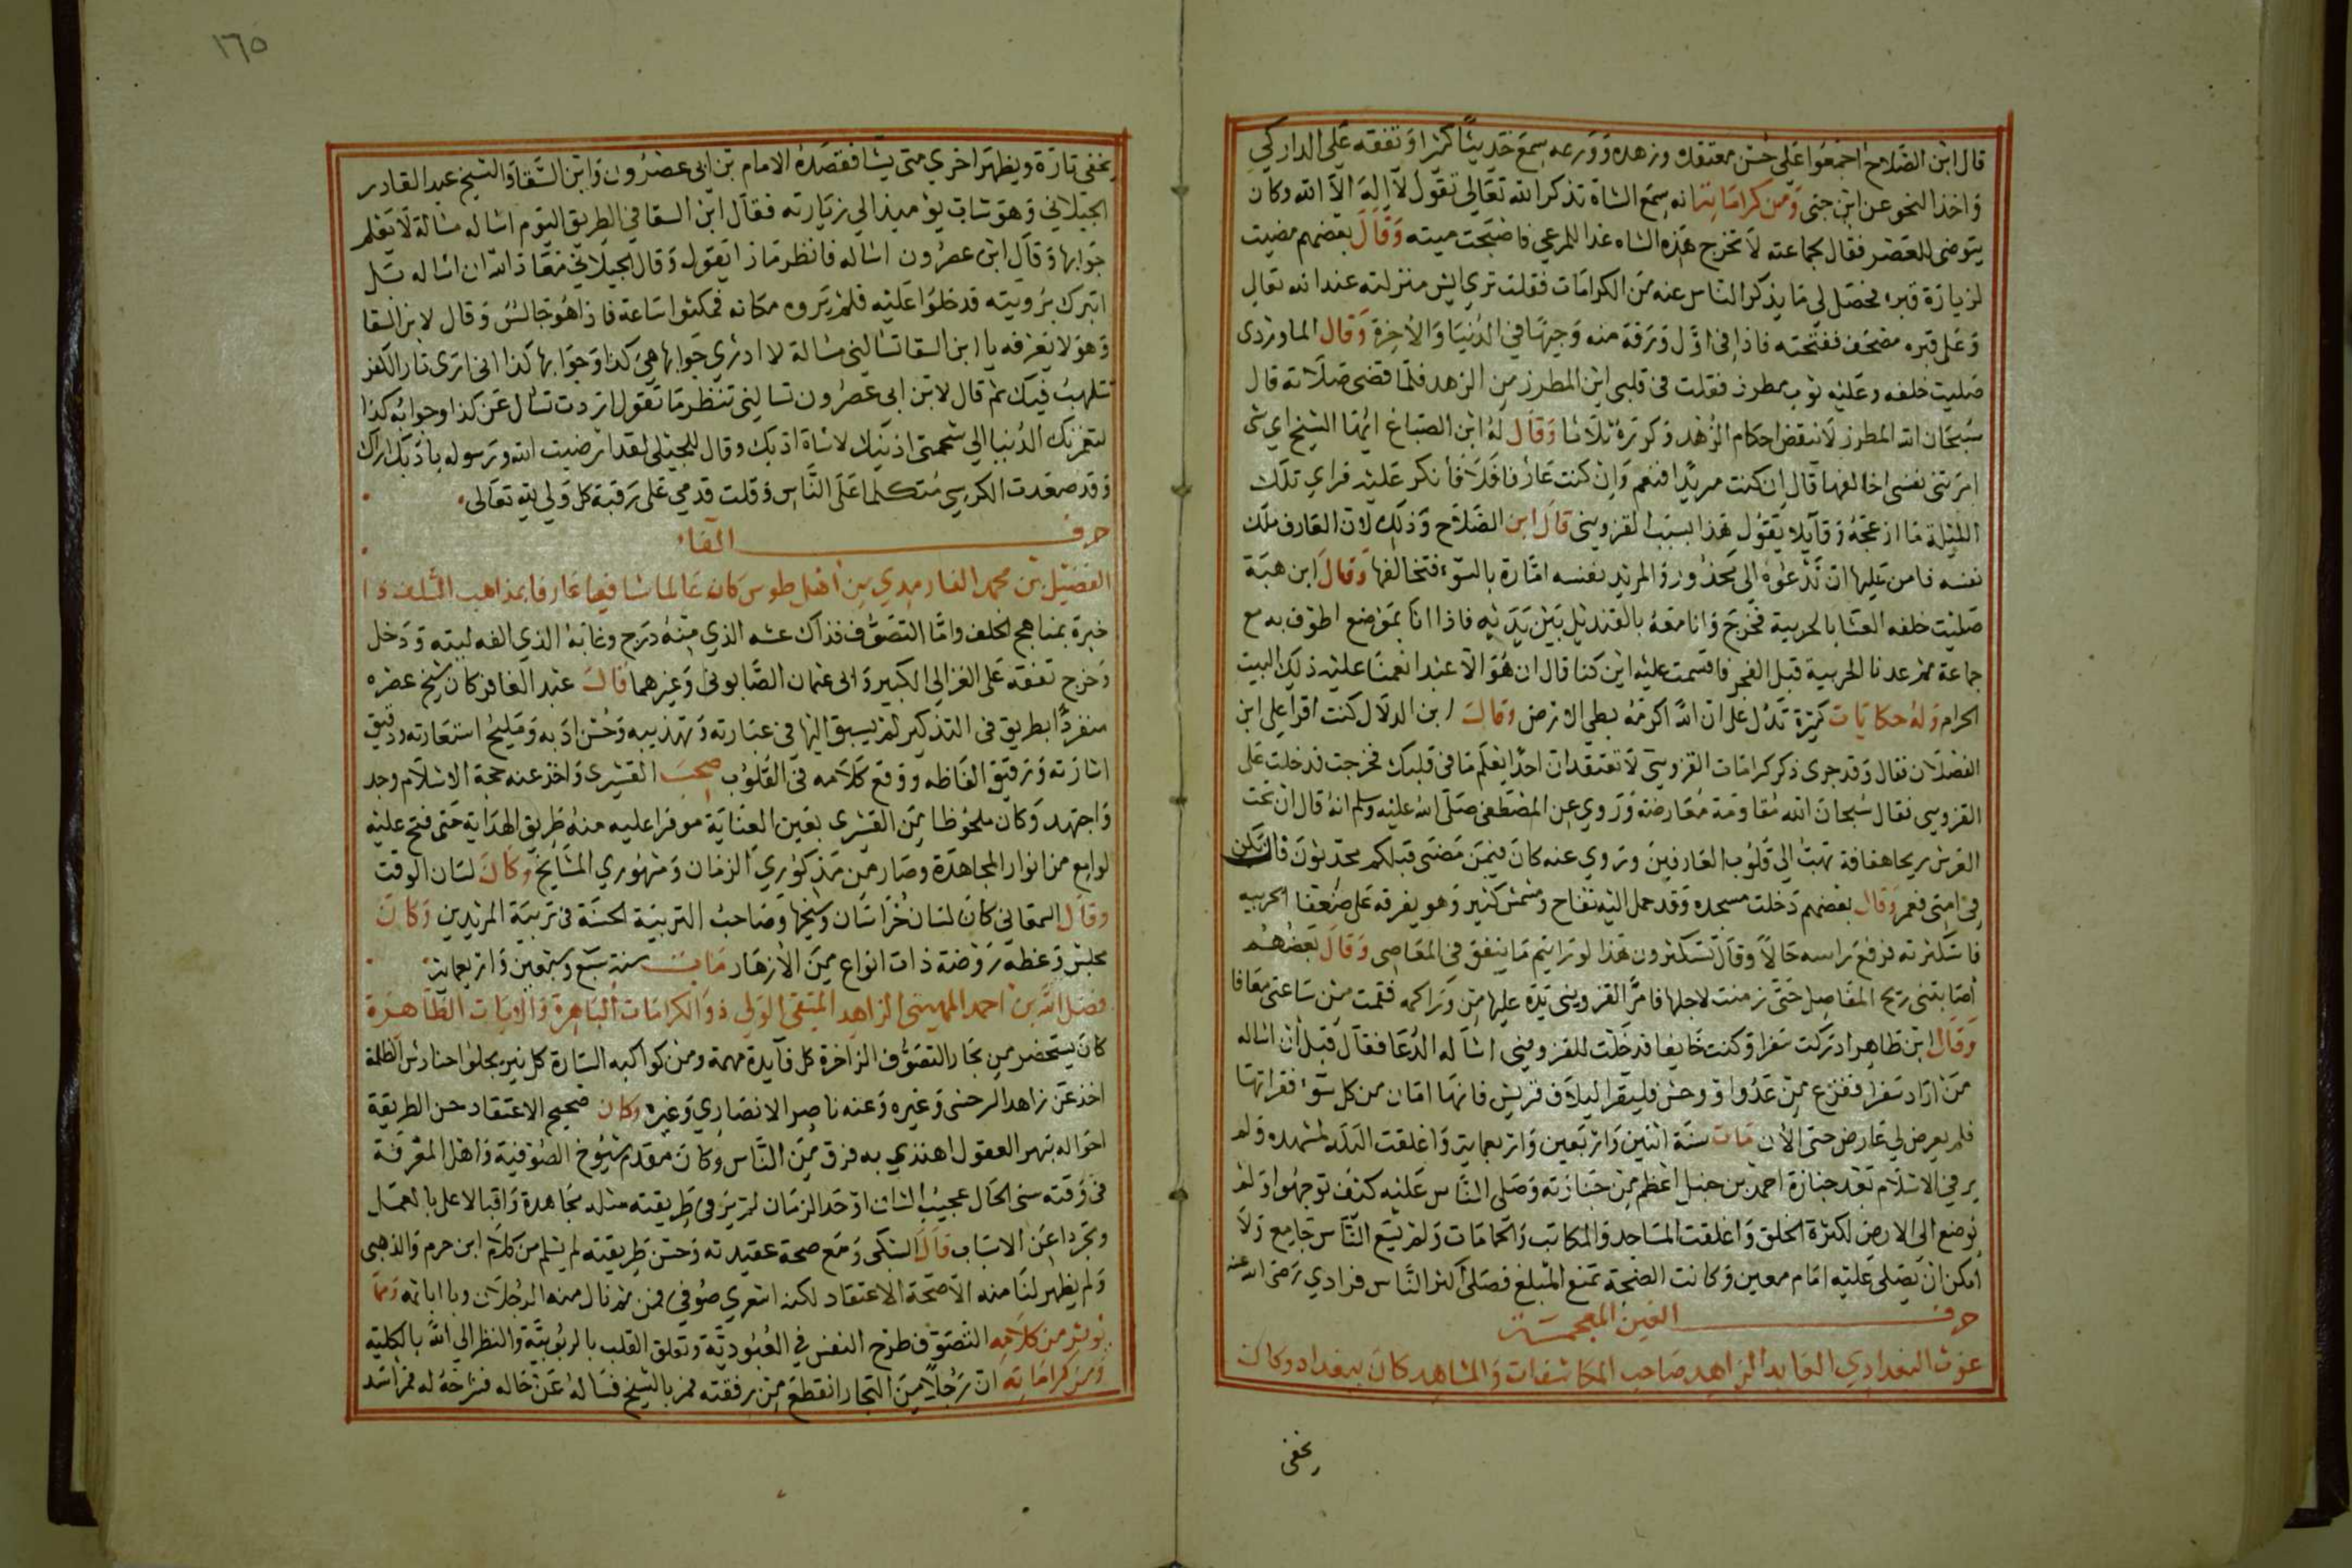 قال ابن الصلاح اجمعوا على حسن معتقده وزهده وورعه سمع حديثا كثيرا وتفقه على الداركي
واخذ النحو عن ابن جني ومن كراماته انه سمع الشاة تذكر الله تعالى تقول لا اله الا الله وكان
يتوضى للعصر فقال لجماعته لا تخرج هذه الشاه غدا للمرعى فاصبحت ميته وقال بعضهم مضيت
لزيارة قبره فحصل لي ما يذكر الناس عنه من الكرامات فقلت ترى ايش منزلته عند الله تعالى
وعلى قبره مصحف ففتحته فاذا في اول ورقة منه وجيها في الدنيا والاخرة وقال الماوردى
صليت خلفه وعليه ثوب مطرز فقلت في قلبي اين المطرز من الزهد فلما قضى صلاته قال
سبحان الله المطرز لا ينقض احكام الزهد وكرره ثلاثا وقال له ابن الصباغ ايها الشيخ اي شى
امرتنى نفسى اخالفها قال ان كنت مريدا فنعم وان كنت عارفا فلا فانكر عليه فراى تلك
الليلة ما ازعجه وقايلا يقول هذا بسبب القزوينى قال ابن الصلاح وذلك لان العارف ملك
نفسه فامن عليها ان تدعوه الى محذور والمريد نفسه امارة بالسوء فتخالفها وقال ابن هبة
صليت خلفه العشا بالحربية فخرج وانا معه بالقنديل بين يديه فاذا انا بموضع اطوف به مع
جماعة ثم عدنا الحربية قبل الفجر فاقسمت عليه اين كنا قال ان هو الا عبد انعمنا عليه ذلك البيت
الحرام وله حكايات كثيرة تدل على ان الله اكرمه بطي الارض وقال ابن الدلال كنت اقرا على ابن
الفضلان فقال وقد جرى ذكر كرامات القزوينى لا تعتقد ان احدا يعلم ما في قلبك فخرجت فدخلت على
القزوينى فقال سبحان الله مقاومة معارضة وروي عن المصطفى صلى الله عليه وسلم انه قال ان تحت
العرش ريحا هفافة تهب الى قلوب العارفين وروي عنه كان فيمن مضى قبلكم محدثون فان يكن
في امتى فعمر وقال بعضهم دخلت مسجده وقد حمل اليه تفاح ومشمش كثير وهو يفرقه على ضعفا الحربيه
فاستكثرته فرفع راسه حالا وقال تستكثرون هذا لو رايتم ما ينفق في المعاصى وقال بعضهم
اصابتنى ريح المفاصل حتى زمنت لاجلها فامر القزوينى يده عليها من وراكمه فقمت من ساعتى معافا
وقال ابن طاهر ادركت سفرا وكنت خايفا فدخلت للقزوينى اسأله الدعا فقال قبل ان اساله
من اراد سفرا ففزع من عدو او وحش فليقرا ليلاف قريش فانها امان من كل سوء فقراتها
فلم يعرض لي عارض حتى الان مات سنة اثنين واربعين واربعماية واغلقت البلد لمشهده ولم
ير في الاسلام بعد جنازة احمد بن حنبل اعظم من جنازته وصلى الناس عليه كيف توجهوا ولم
توضع الى الارض لكثرة الخلق واغلقت المساجد والمكاتب والحمامات ولم يسع الناس جامع ولا
امكن ان يصلى عليه امام معين وكانت الضجة تمنع المبلغ فصلى اكثر الناس فرادي رضى الله عنه
حرف الغين المعجمة
غوث البغدادي العابد الزاهد صاحب المكاشفات والمشاهد كان ببغداد وكان
يخفى
١٦٥
يخفى تارة ويظهر اخرى متى يشا فقصده الامام بن ابى عصرون وابن السقا والشيخ عبد القادر
الجيلاني وهو شاب يوميذ الى زيارته فقال ابن السقا في الطريق اليوم اساله مسالة لا يعلم
جوابها وقال ابن عصرون اساله فانظر ماذا يقول وقال الجيلاني معاذ الله ان اساله بل
اتبرك برويته فدخلوا عليه فلم يروه مكانه فمكثوا ساعة فاذا هو جالس وقال لابن السقا
وهو لا يعرفه يا ابن السقا تسالنى مسالة لا ادرى جوابها هي كذا وجوابها كذا انى ارى نار الكفر
تلهب فيك ثم قال لابن ابى عصرون تسالنى تنظر ما تقول اردت تسال عن كذا وجوابه كذا
لتغمرنك الدنيا الى شحمتى اذنيك لاساة ادبك وقال للجيلى لقد ارضيت الله ورسوله بادبك اراك
وقد صعدت الكرسي متكلما على الناس وقلت قدمي على رقبة كل ولي لله تعالى
حرف الفاء
الفضيل بن محمد الفارمدي من اهل طوس كان عالما شافعيا عارفا بمذاهب السلف ذا
خبرة بمناهج الخلف واما التصوف فذاك عشه الذي منه درج وغابه الذي الفه ليته ودخل
وخرج تفقه على الغزالي الكبير وابى عثمان الصابونى وغيرهما قال عبد الغافر كان شيخ عصره
منفردا بطريق في التذكير لم يسبق اليها في عبارته وتهذيبه وحسن ادبه ومليح استعارته ودقيق
اشارته وترقيق الفاظه ووقع كلامه في القلوب صحب القشيرى واخذ عنه حجة الاسلام وجد
واجتهد وكان ملحوظا من القشيرى بعين العناية موفرا عليه منه طريق الهداية حتى فتح عليه
لوامع من انوار المجاهدة وصار من مذكوري الزمان ومشهوري المشايخ وكان لسان الوقت
وقال السمعاني كان لسان خراسان وشيخها وصاحب التربية الحسنة في تربية المريدين وكان
مجلس وعظه روضة ذات انواع من الازهار مات سنة سبع وسبعين واربعماية
فضل الله بن احمد المهينى الزاهد المتقى الولي ذو الكرامات الباهرة والايات الظاهرة
كان يستحضر من بحار التصوف الزاخرة كل فايدة مهمة ومن كواكبه السارة كل نير يجلوا حنادس الظلمة
اخذ عن زاهد السرخسى وغيره وعنه ناصر الانصاري وغيره وكان صحيح الاعتقاد حسن الطريقة
احواله تبهر العقول اهتدي به فرق من الناس وكان مقدم شيوخ الصوفية واهل المعرفة
في وقته سنى الحال عجيب الشان اوحد الزمان لم ير في طريقته مثله مجاهدة واقبالا على بالعمل
وتجردا عن الاسباب قال السبكى ومع صحة عقيدته وحسن طريقته لم يسلم من كلام ابن حزم والذهبى
ولم يظهر لنا منه الا صحة الاعتقاد لكنه اشعري صوفي فمن ثم نال منه الرجلان وباا باثمه ومما
نوثر من كلامه التصوف طرح النفس في العبودية وتعلق القلب بالربوبية والنظر الى الله بالكلية
ومن كراماته ان رجلا من التجار انقطع من رفقته فمر بالشيخ فساله عن حاله فشرحه له فمر اسد